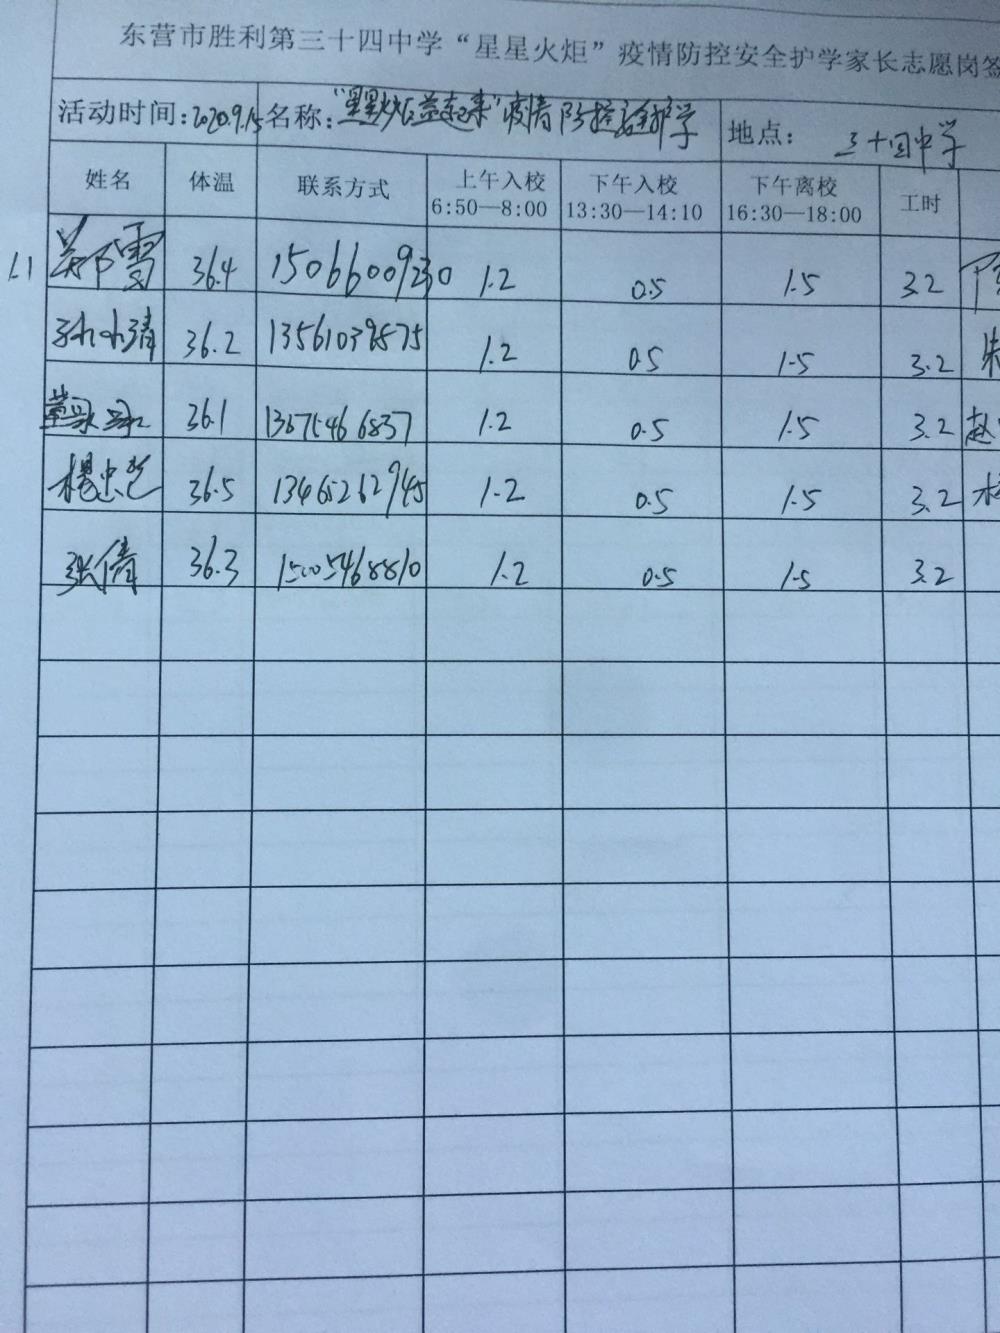 东营市胜利第三十四中学“星星火炬”疫情防控安全护学家长志愿岗签
活动时间:2020.9.15 名称:“星星火炬益起来”疫情防控安全护学 地点: 三十四中学
姓名 体温 联系方式 上午入校 6:50—8:00 下午入校 13:30—14:10 下午离校 16:30—18:00 工时
1.1 郑雪 36.4 15066009230 1.2 0.5 1.5 3.2
孙小清 36.2 13561039875 1.2 0.5 1.5 3.2 朱
董 36.1 13675466837 1.2 0.5 1.5 3.2 赵
杨忠艺 36.5 13465262945 1.2 0.5 1.5 3.2
张倩 36.3 15005468810 1.2 0.5 1.5 3.2